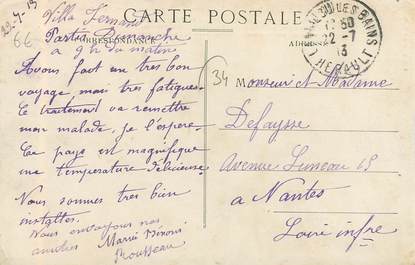 CARTE POSTALE
22-7-13
Villa Fernand
Partis Dimanche
à 9h du matin
CORRESPONDANCE
66
Avons fait un tres bon
voyage mais tres fatigues.
Le traitement va remettre
mon malade, je l'espere.
Ce pays est magnifique
une température délicieuse
Nous sommes tres bien
installés.
Nous envoyons nos
amities
Rousseau
34
LES BAINS
22 -7
13
HERAULT
ADRESSE
Monsieur et Madame
Defaysse
Avenue 
a Nantes
Loire infre